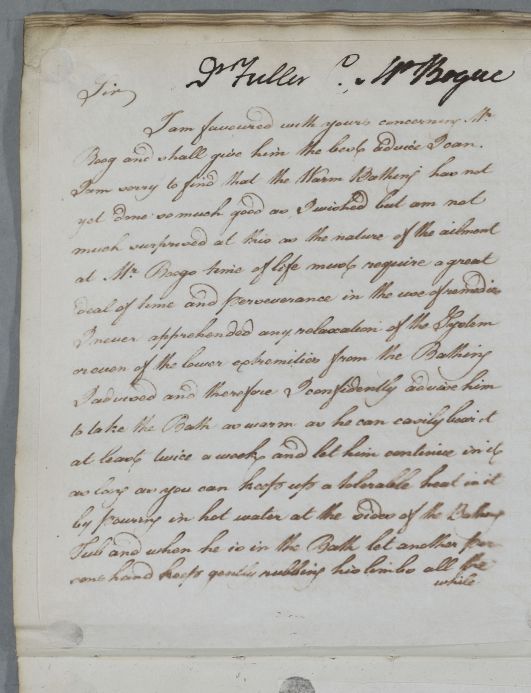 Dr. Fuller P. Mr Bogue
Sir
I am favoured with yours concerning Mr.
Boog and shall give him the best advice I can.
I am sorry to find that the Warm Bathing has not
yet done so much good as I wished but am not
much surprised at this as the nature of the ailment
at Mr. Boogs time of life must require a great
deal of time and perseverance in the use of remedies
I never apprehended any relaxation of the System
or even of the lower extremities from the Bathing
I advised and therefore I confidently advise him
to take the Bath as warm as he can easily bear it
at least twice a week, and let him continue in it
as long as you can keep up a tolerable heat in it
by pouring in hot water at the sides of the Bathing
Tub and when he is in the Bath let another per
sons hand keep gently rubbing his limbs all the
while